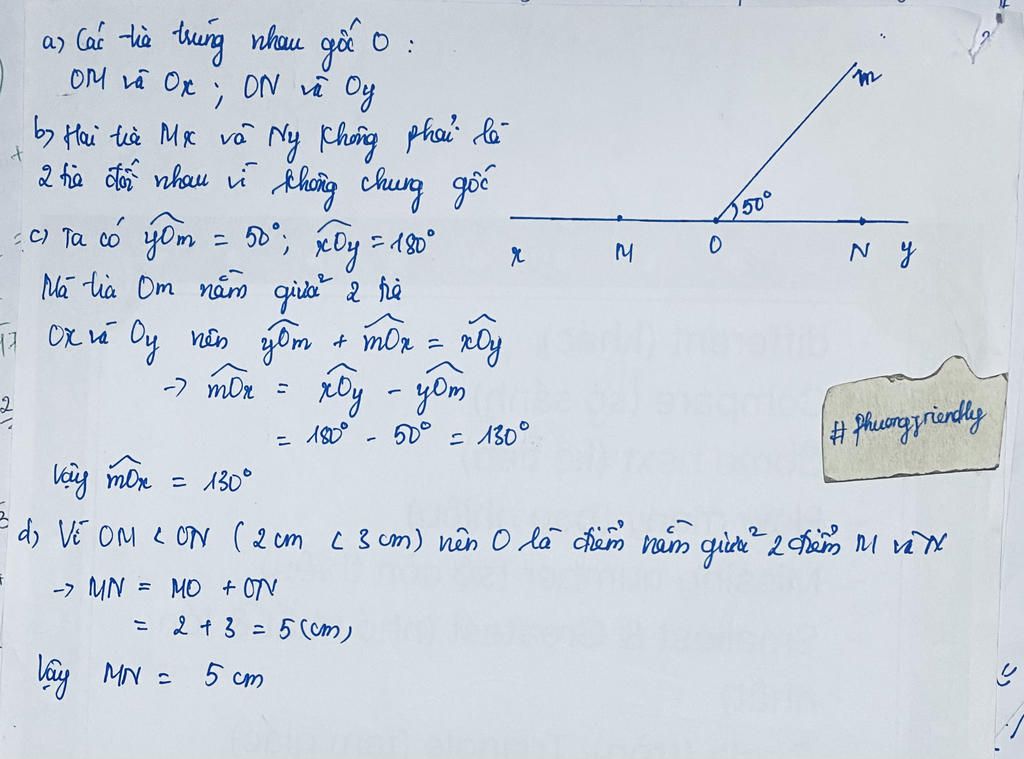 a) Các tia trùng nhau gốc O :
OM và Ox ; ON và Oy
b) Hai tia Mx và Ny không phải là
2 tia đối nhau vì không chung gốc
c) Ta có yOm = 50° ; xOy = 180°
Mà tia Om nằm giữa 2 tia
Ox và Oy nên yOm + mOx = xOy
-> mOx = xOy - yOm
= 180° - 50° = 130°
Vậy mOx = 130°
d) Vì OM < ON ( 2 cm < 3 cm) nên O là điểm nằm giữa 2 điểm M và N
-> MN = MO + ON
= 2 + 3 = 5 (cm)
Vậy MN = 5 cm
m
50°
x M O N y
# Phuongfriendly